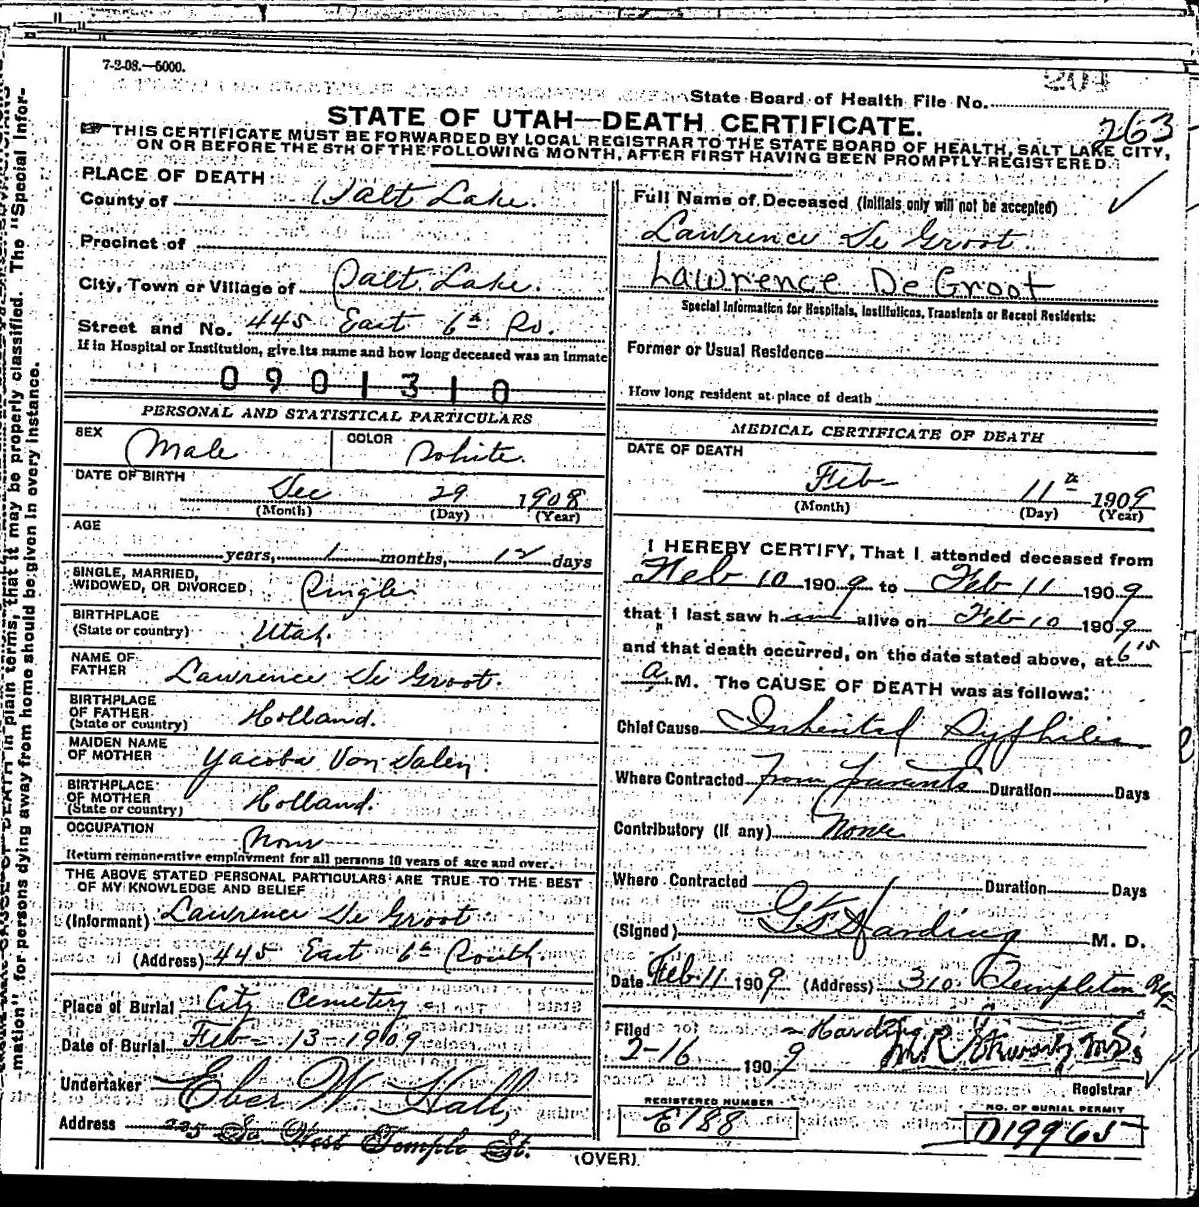 7-2-08.—5000.
204
State Board of Health File No.
263
STATE OF UTAH—DEATH CERTIFICATE.
THIS CERTIFICATE MUST BE FORWARDED BY LOCAL REGISTRAR TO THE STATE BOARD OF HEALTH, SALT LAKE CITY,
ON OR BEFORE THE 5TH OF THE FOLLOWING MONTH, AFTER FIRST HAVING BEEN PROMPTLY REGISTERED.
PLACE OF DEATH
County of Salt Lake.
Precinct of
City, Town or Village of Salt Lake.
Street and No. 445 East 6th So.
If in Hospital or Institution, give its name and how long deceased was an inmate
0901310
PERSONAL AND STATISTICAL PARTICULARS
SEX Male COLOR White.
DATE OF BIRTH
Dec 29 1908
(Month) (Day) (Year)
AGE
years, 1 months, 12 days
SINGLE, MARRIED,
WIDOWED, OR DIVORCED Single
BIRTHPLACE
(State or country) Utah.
NAME OF
FATHER Lawrence De Groot.
BIRTHPLACE
OF FATHER
(State or country) Holland.
MAIDEN NAME
OF MOTHER Yacoba Van Dalen.
BIRTHPLACE
OF MOTHER
(State or country) Holland.
OCCUPATION None
Return remunerative employment for all persons 10 years of age and over.
THE ABOVE STATED PERSONAL PARTICULARS ARE TRUE TO THE BEST
OF MY KNOWLEDGE AND BELIEF
(Informant) Lawrence De Groot
(Address) 445 East 6th South.
Place of Burial City Cemetery
Date of Burial Feb - 13 - 1909
Undertaker Eber W. Hall,
Address 225 So West Temple St.
Full Name of Deceased (Initials only will not be accepted)
Lawrence De Groot.
Lawrence De Groot
Special Information for Hospitals, Institutions, Transients or Recent Residents:
Former or Usual Residence
How long resident at place of death
MEDICAL CERTIFICATE OF DEATH
DATE OF DEATH
Feb 11th 1909
(Month) (Day) (Year)
I HEREBY CERTIFY, That I attended deceased from
Feb 10 1909 to Feb 11 1909
that I last saw him alive on Feb 10 1909
and that death occurred, on the date stated above, at 6 15
a. M. The CAUSE OF DEATH was as follows:
Chief Cause Inherited Syphilis
Where Contracted From parents Duration Days
Contributory (if any) None
Where Contracted Duration Days
(Signed) G S Harding M. D.
Date Feb 11 1909 (Address) 310 Templeton Blg
Filed Harding
2-16 1909
Registrar
REGISTERED NUMBER
E188
NO. OF BURIAL PERMIT
D19965
(OVER)
in plain terms, that it may be properly classified. The "Special Infor-
mation" for persons dying away from home should be given in every instance.